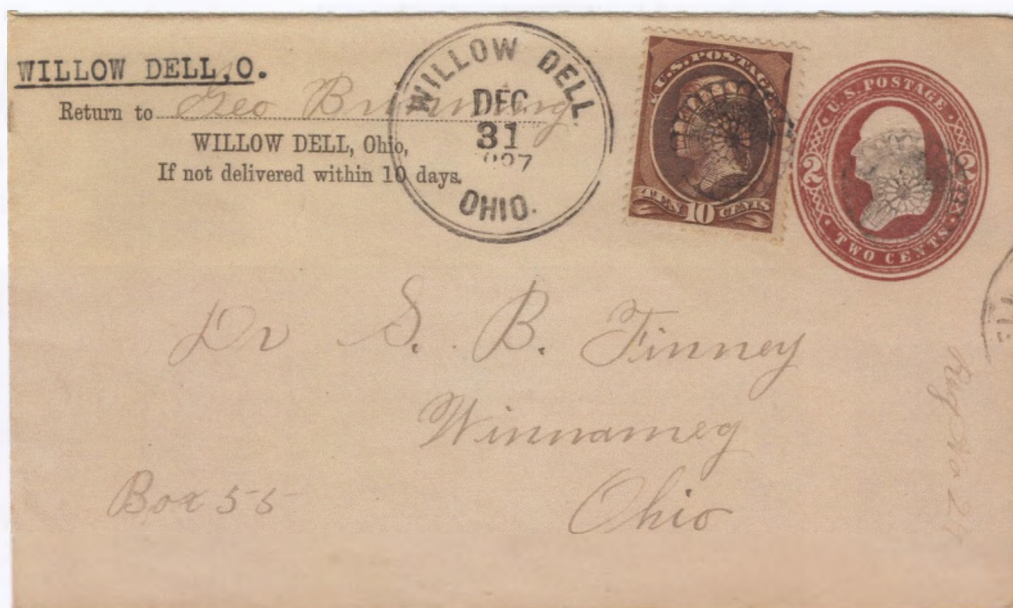 WILLOW DELL, O.
Return to Geo Browning
WILLOW DELL, Ohio,
If not delivered within 10 days.
WILLOW DELL.
DEC
31
OHIO.
U.S. POSTAGE
TEN 10 CENTS
U.S. POSTAGE
2 2
TWO CENTS
Dr S. B. Finney
Winnameg
Ohio
Box 55
Reg No 27